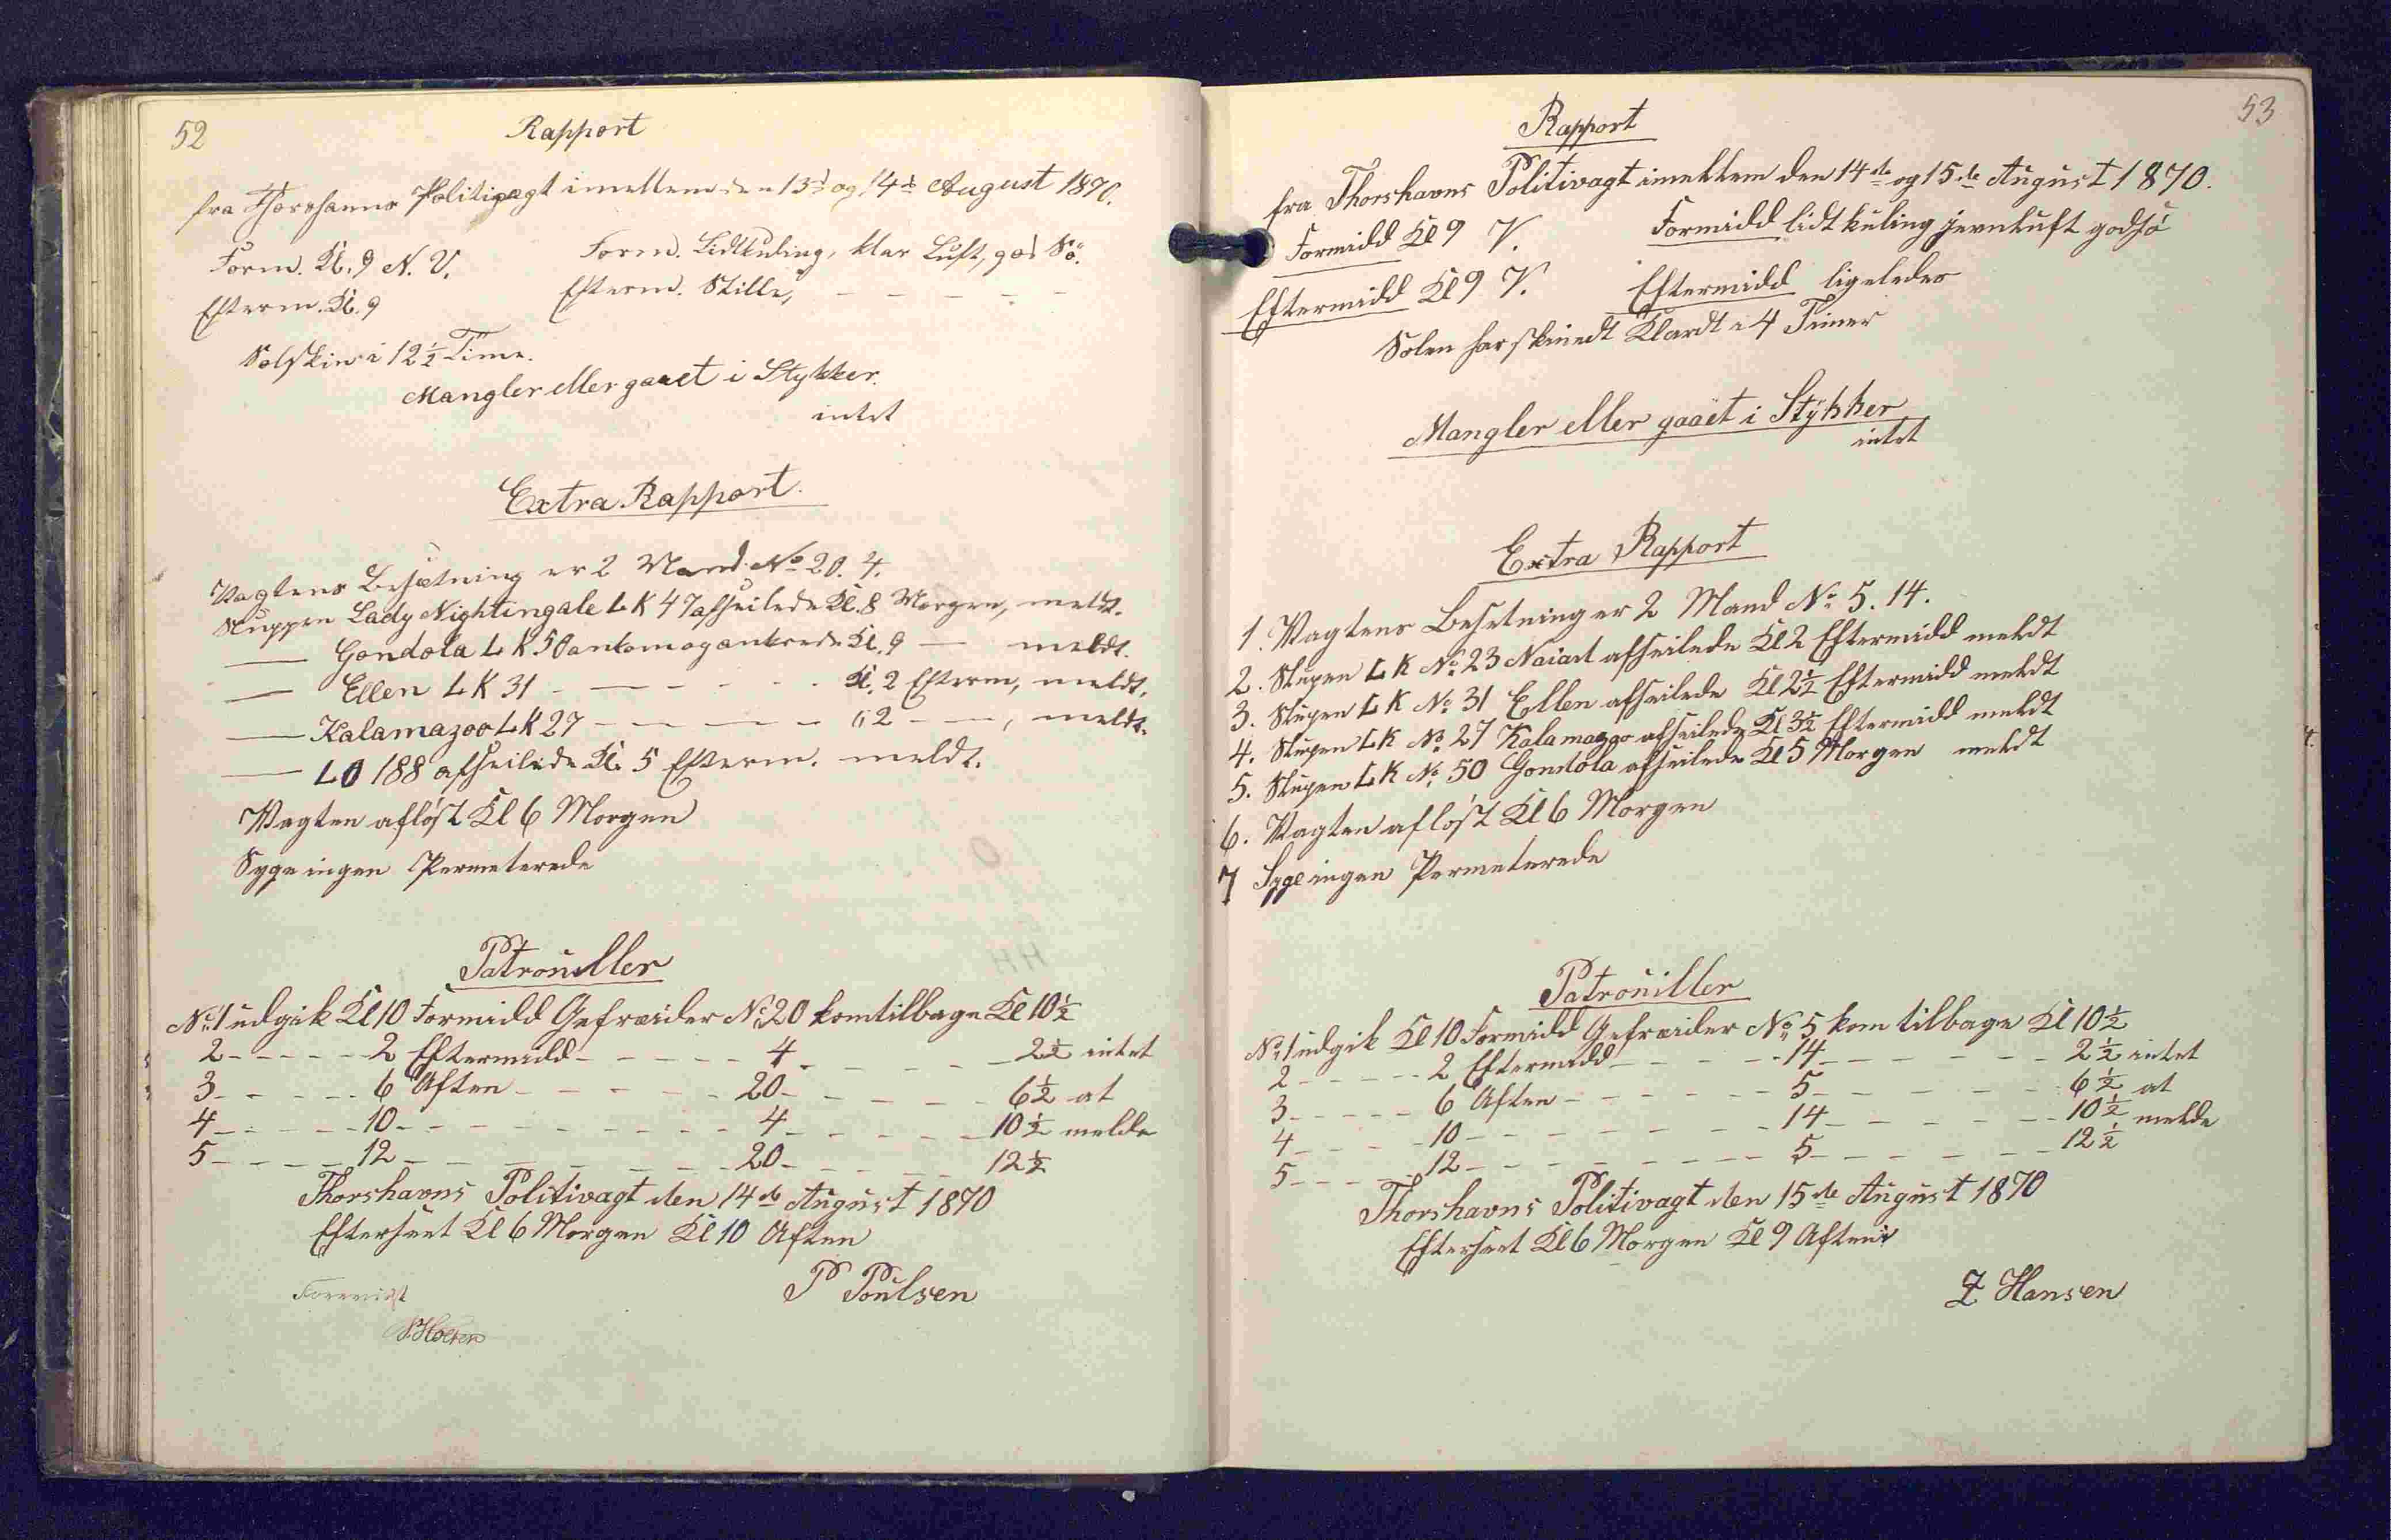 52
Rapport
fra Thorshavns Politivagt imellem den 13de og 14de August 1870.
Form. Kl. 9 N. V. Form. Lidt kuling, klar Luft, god Sö.
Efterm. Kl. 9 Efterm. Stille, — — — — —
Solskin i 12½ Time.
Mangler eller gaaet i Stykker.
intet
Extra Rapport.
Vagtens Besætning er 2 Mand No 20. 4.
Sluppen Lady Nightingale LK 47 afseilede Kl. 8 Morgen, meldt.
— Gondola LK 50 ankom og ankrede Kl. 9 — meldt.
— Ellen LK 31 - — - - - - Kl. 2 Efterm, meldt.
— Kalamazoo LK 27 — — — — — " 2 — —, meldt.
— LO 188 afseilede Kl. 5 Efterm. meldt.
Vagten afløst Kl 6 Morgen
Syge ingen Permeterede
Patrouiller
No 1 udgik Kl 10 Formidd Gefreider No 20 kom tilbage Kl 10½
2 - - - - - 2 Eftermidd - - - - - 4 - - - - - 2½ intet
3 - - - - - 6 Aften - - - - - 20 - - - - - 6½ at
4 - - - - - 10 - - - - - - - - - 4 - - - - - 10½ melde
5 - - - - - 12 - - - - - - - - - 20 - - - - - 12½
Thorshavns Politivagt den 14de August 1870
Efterseet Kl 6 Morgen Kl 10 Aften
P Poulsen
Forevist
53
Rapport
fra Thorshavns Politivagt imellem den 14de og 15de August 1870.
Formidd Kl 9 V. Formidd lidt kuling jevn luft god sö
Eftermidd Kl 9 V. Eftermidd ligeledes
Solen har skinedt Klardt i 4 Timer
Mangler eller gaaet i Stykker
intet
Extra Rapport
1. Vagtens Besetning er 2 Mand No 5. 14.
2. Slupen LK No 23 Naiad afseilede Kl 2 Eftermidd meldt
3. Slupen LK No 31 Ellen afseilede Kl 2½ Eftermidd meldt
4. Slupen LK No 27 Kalamazoo afseilede Kl 3½ Eftermidd meldt
5. Slupen LK No 50 Gondola afseilede Kl 5 Morgen meldt
6. Vagten afløst Kl 6 Morgen
7 Syge ingen Permeterede
Patrouiller
No 1 udgik Kl 10 Formidd Gefreider No 5 kom tilbage Kl 10½
2 - - - - - 2 Eftermidd - - - - - 14 - - - - - 2½ intet
3 - - - - - 6 Aften - - - - - 5 - - - - - 6½ at
4 - - - - - 10 - - - - - - - - - 14 - - - - - 10½ melde
5 - - - - - 12 - - - - - - - - - 5 - - - - - 12½
Thorshavns Politivagt den 15de August 1870
Efterseet Kl 6 Morgen Kl 9 Aften
Z Hansen